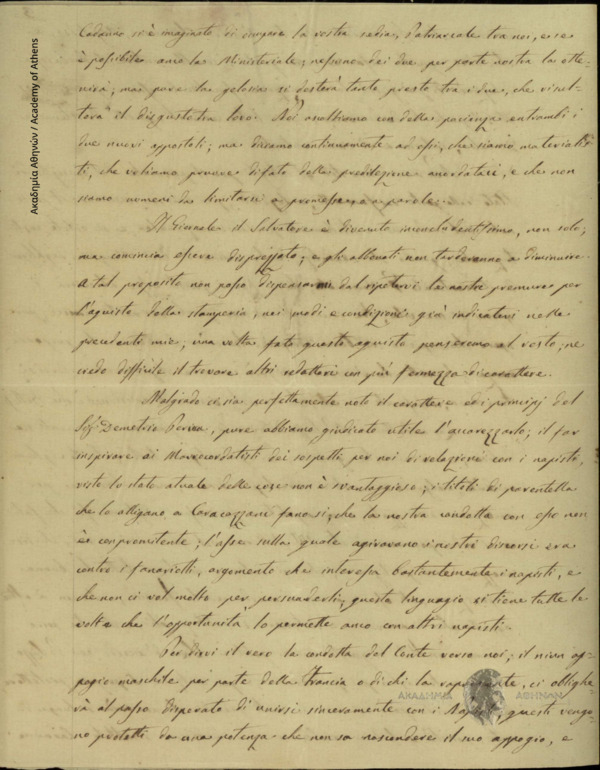 Ακαδημία Αθηνών / Academy of Athens
Cadauno si è imaginato di occupare la vostra sedia Patriarcale tra noi, e se
è possibile anco la Ministeriale; nessuno dei due per parte nostra la otte-
nirà; ma pure la gelosia si desterà tanto presto tra i due, che risul-
terà il disgusto tra loro. Noi ascoltiamo con della pacienza entrambi i
due nuovi appostoli; ma diciamo continuamente ad essi, che siamo materialis-
ti, che voliamo pruove di fato della predilezione anordataci, e che non
siamo nomeni da limitarsi a promesse e a parole.
Il Giornale il Salvatore è divenuto inconcludentissimo, non solo;
ma comincia essere disprezzato; e gli abbonati non tarderanno a diminuire.
A tal proposito non posso dispensarmi dal ripetervi le nostre premure per
l'aquisto della stamperia, nei modi e condizioni già indicatevi nelle
precedenti mie, una volta fato questo aquisto penseremo al resto; ne
credo difficile il trovare altri redattori con più fermezza di carattere.
Malgrado ci sia perfettamente noto il carattere ed i principj del
Sig. Demetrio Perrea, pure abbiamo giudicato utile l'accarezzarlo; il far
inspirare ai Mavrocordatisti dei sospetti per noi di relazioni con i napisti,
visto lo stato atuale delle cose non è svantaggioso; i titoli di parentella
che lo attigano a Caracazzani fano sì, che la nostra condotta con esso non
è conpromitente; l'asse sulla quale agiravano i nostri discorsi era
contro i fanariotti, argomento che interessa bastantemente i napisti, e
che non ci vol molto per persuaderli; questo linguagio si tiene tutte le
volte che l'opportunità lo permette anco con altri napisti.
Per dirvi il vero la condotta del Conte verso noi; il niun ap-
pogio maschile per parte della Francia e di chi la rapresenta, ci obblighe-
rà al passo disperato di unirsi sinceramente con i Napisti, questi vengo-
no protetti da una potenza che non sa nascondere il suo appogio, e
ΑΚΑΔΗΜΙΑ ΑΘΗΝΩΝ